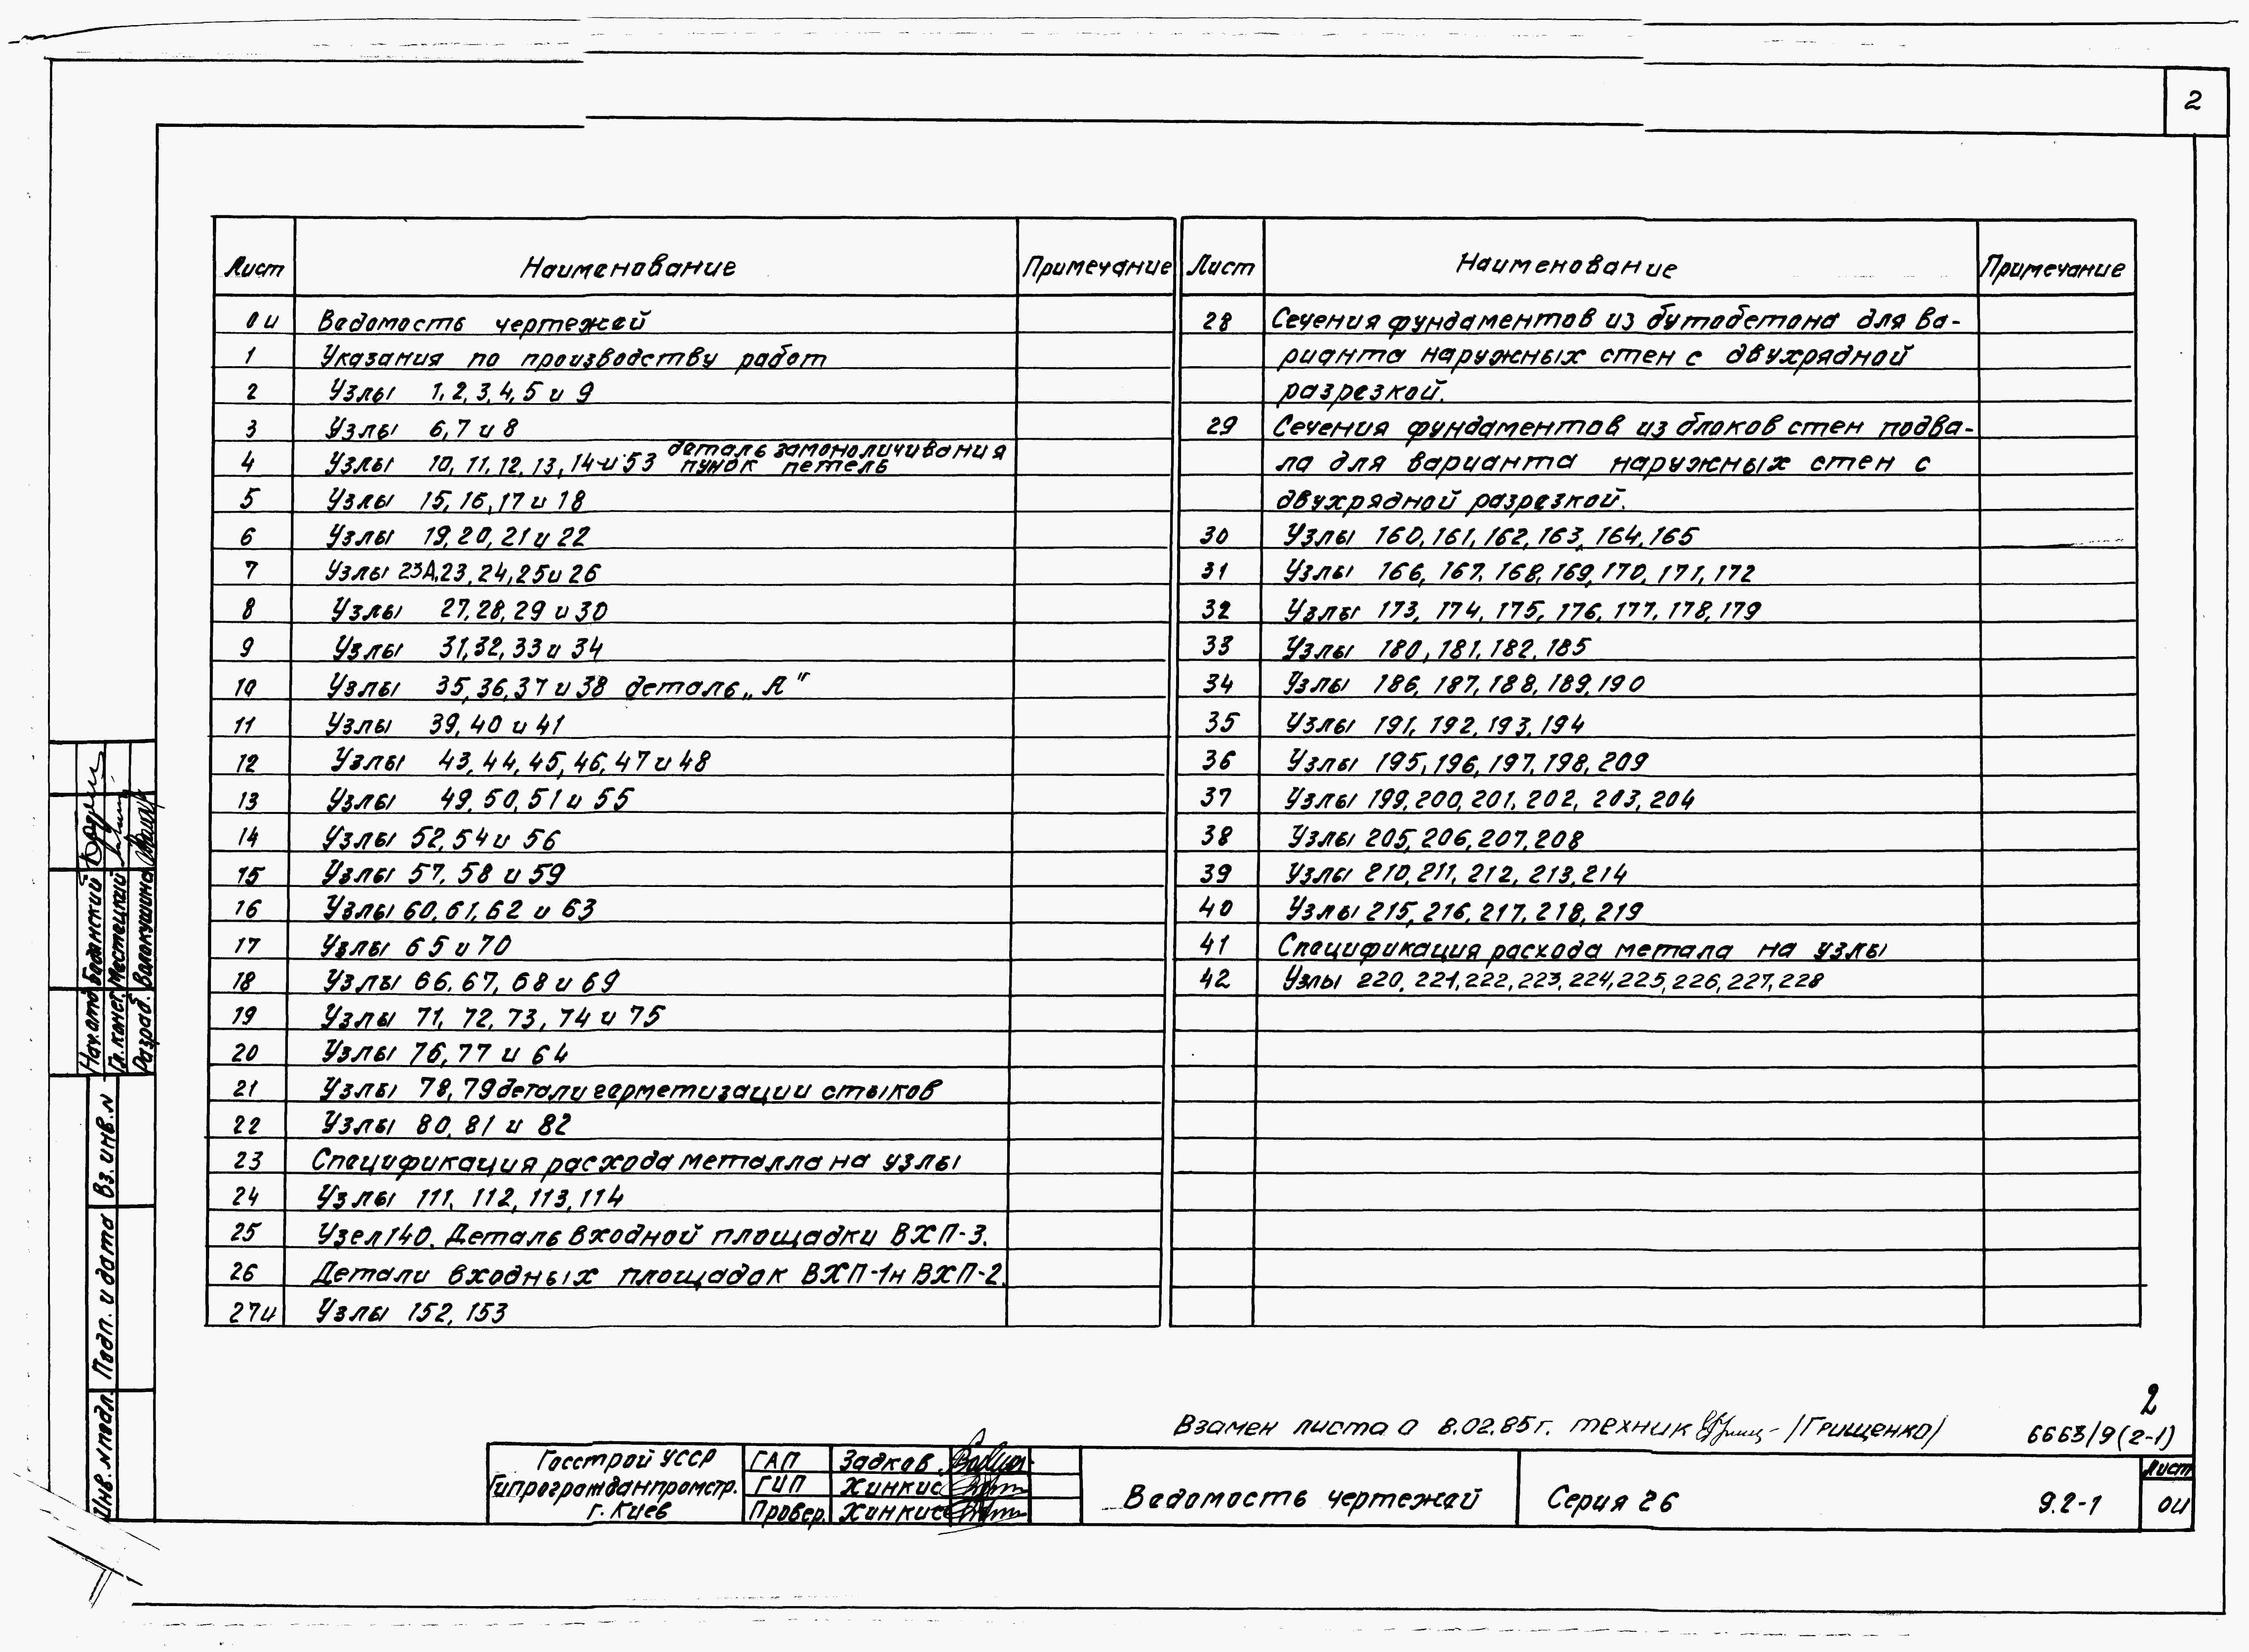 2
Лист Наименование Примечание
0и Ведомость чертежей
1 Указания по производству работ
2 Узлы 1, 2, 3, 4, 5 и 9
3 Узлы 6, 7 и 8
4 Узлы 10, 11, 12, 13, 14 и 53 деталь замоноличивания
петель
5 Узлы 15, 16, 17 и 18
6 Узлы 19, 20, 21 и 22
7 Узлы 23А, 23, 24, 25 и 26
8 Узлы 27, 28, 29 и 30
9 Узлы 31, 32, 33 и 34
10 Узлы 35, 36, 37 и 38 деталь „А"
11 Узлы 39, 40 и 41
12 Узлы 43, 44, 45, 46, 47 и 48
13 Узлы 49, 50, 51 и 55
14 Узлы 52, 54 и 56
15 Узлы 57, 58 и 59
16 Узлы 60, 61, 62 и 63
17 Узлы 65 и 70
18 Узлы 66, 67, 68 и 69
19 Узлы 71, 72, 73, 74 и 75
20 Узлы 76, 77 и 64
21 Узлы 78, 79 детали герметизации стыков
22 Узлы 80, 81 и 82
23 Спецификация расхода металла на узлы
24 Узлы 111, 112, 113, 114
25 Узел 140. Деталь входной площадки ВХП-3.
26 Детали входных площадок ВХП-1н ВХП-2.
27и Узлы 152, 153
Лист Наименование Примечание
28 Сечения фундаментов из бутобетона для ва-
рианта наружных стен с двухрядной
разрезкой.
29 Сечения фундаментов из блоков стен подва-
ла для варианта наружных стен с
двухрядной разрезкой.
30 Узлы 160, 161, 162, 163, 164, 165
31 Узлы 166, 167, 168, 169, 170, 171, 172
32 Узлы 173, 174, 175, 176, 177, 178, 179
33 Узлы 180, 181, 182, 185
34 Узлы 186, 187, 188, 189, 190
35 Узлы 191, 192, 193, 194
36 Узлы 195, 196, 197, 198, 209
37 Узлы 199, 200, 201, 202, 203, 204
38 Узлы 205, 206, 207, 208
39 Узлы 210, 211, 212, 213, 214
40 Узлы 215, 216, 217, 218, 219
41 Спецификация расхода метала на узлы
42 Узлы 220, 221, 222, 223, 224, 225, 226, 227, 228
Нач. отд. Баданский
Гл. конст. Местецкий
Разраб. Валакушина
Вз. инв. N
Подп. и дата
Инв. N подл.
2
Взамен листа 0 8.02.85г. техник /Грищенко/
6663/9 (2-1)
Госстрой УССР
Гипрогражданпромстр.
г. Киев
ГАП Задков
ГИП Хинкис
Провер. Хинкис
Ведомость чертежей
Серия 26
9.2-1
Лист
0и